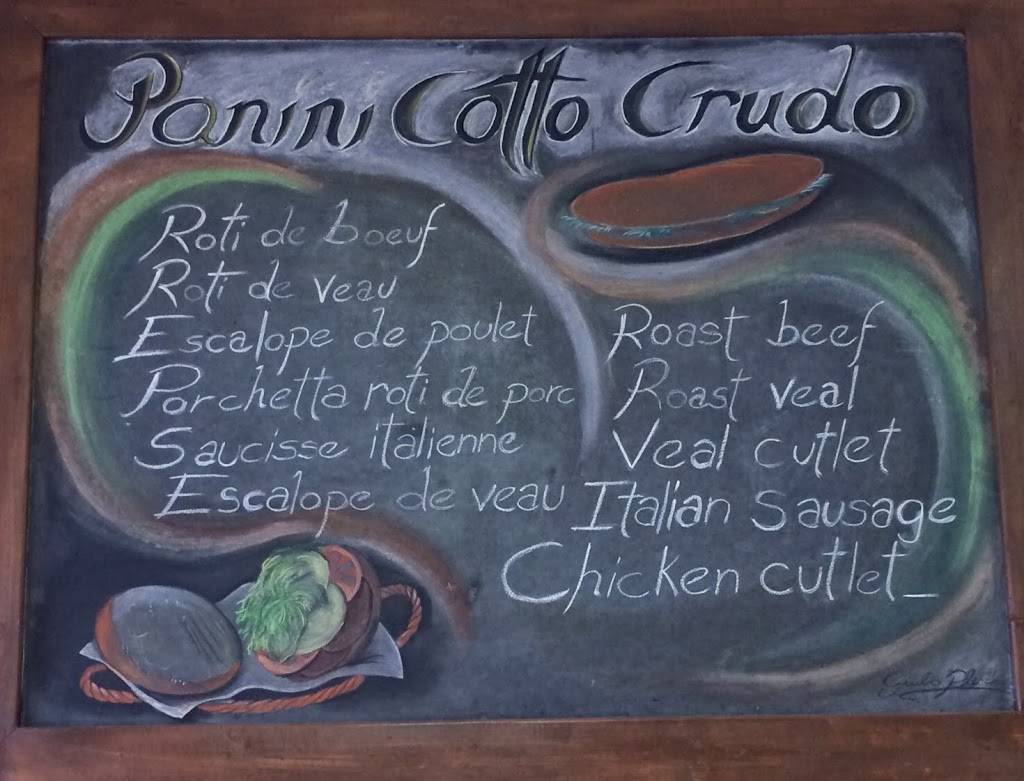 Panini Cotto Crudo
Roti de boeuf
Roti de veau
Escalope de poulet
Porchetta roti de porc
Saucisse italienne
Escalope de veau
Roast beef
Roast veal
Veal cutlet
Italian Sausage
Chicken cutlet_